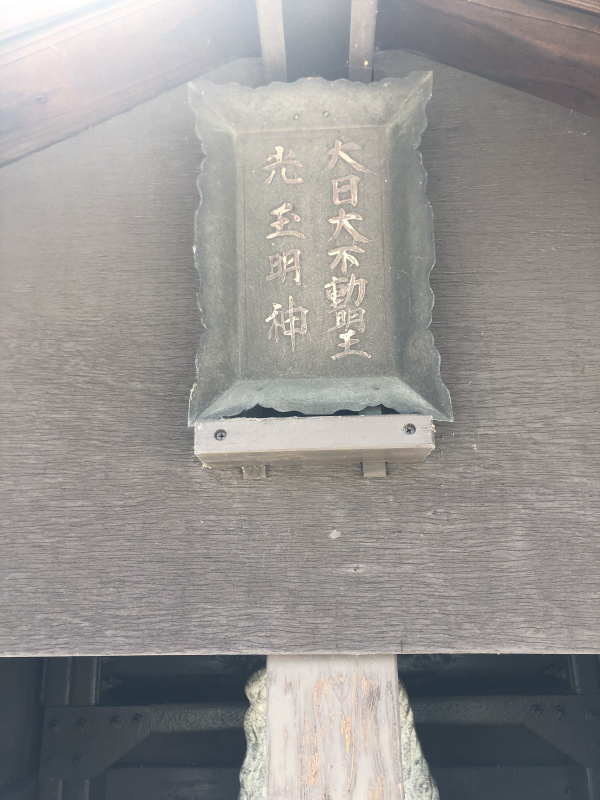 大日大不動明王
光玉明神